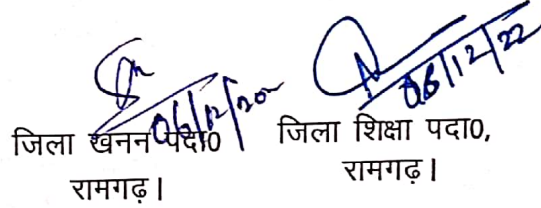 06/12/2022
06/12/22
जिला खनन पदा0
रामगढ़।
जिला शिक्षा पदा0,
रामगढ़।